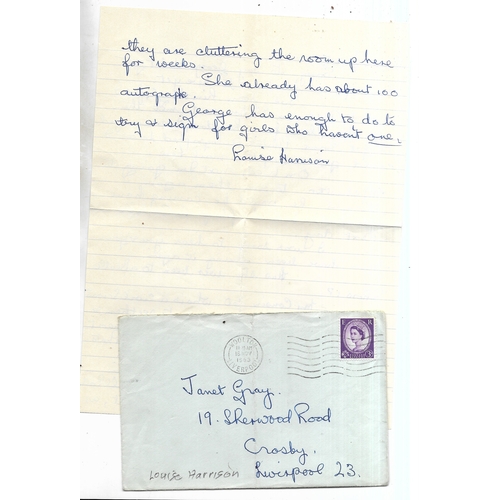 they are cluttering the room up here
for weeks.
She already has about 100
autograph.
George has enough to do to
try & sign for girls who haven't one.
Louise Harrison
Janet Gray.
19. Sherwood Road
Crosby.
Liverpool 23.
Louise Harrison